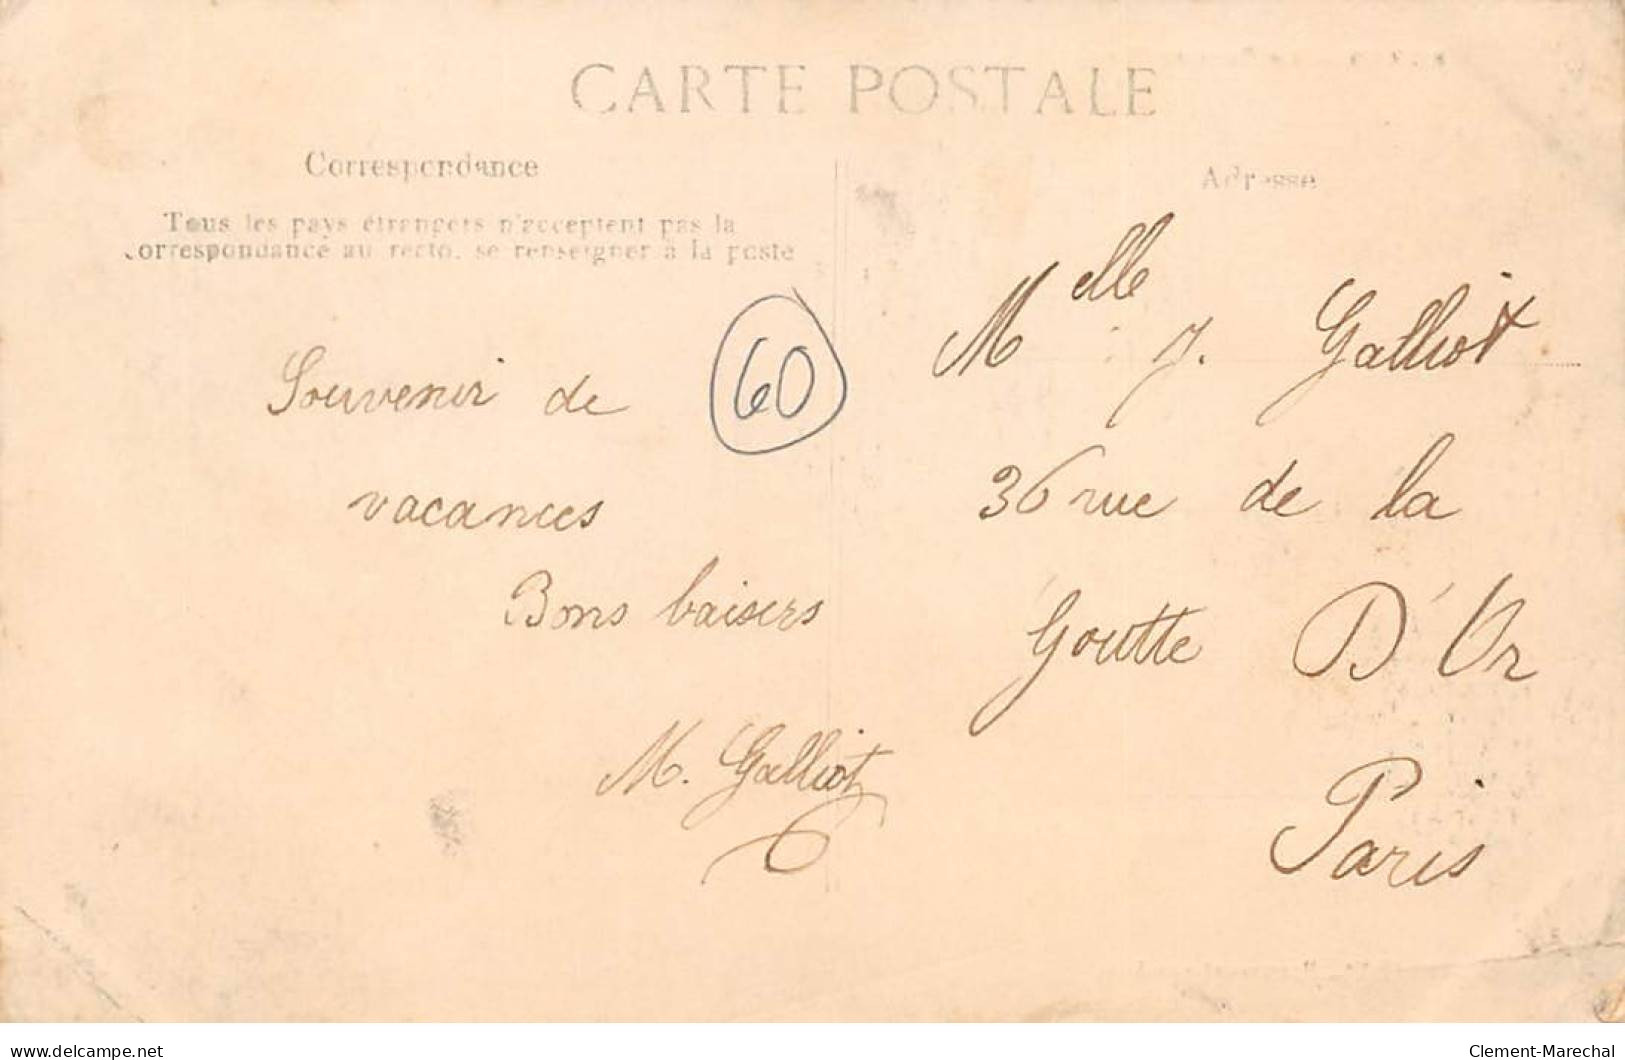 CARTE POSTALE
Correspondance
Tous les pays étrangers n'acceptent pas la
correspondance au recto, se renseigner à la poste
Souvenir de
vacances
Bons baisers
M. Galliot
60
Adresse
Melle J. Galliot
36 rue de la
Goutte D'Or
Paris
delcampe.net
Clement-Marechal